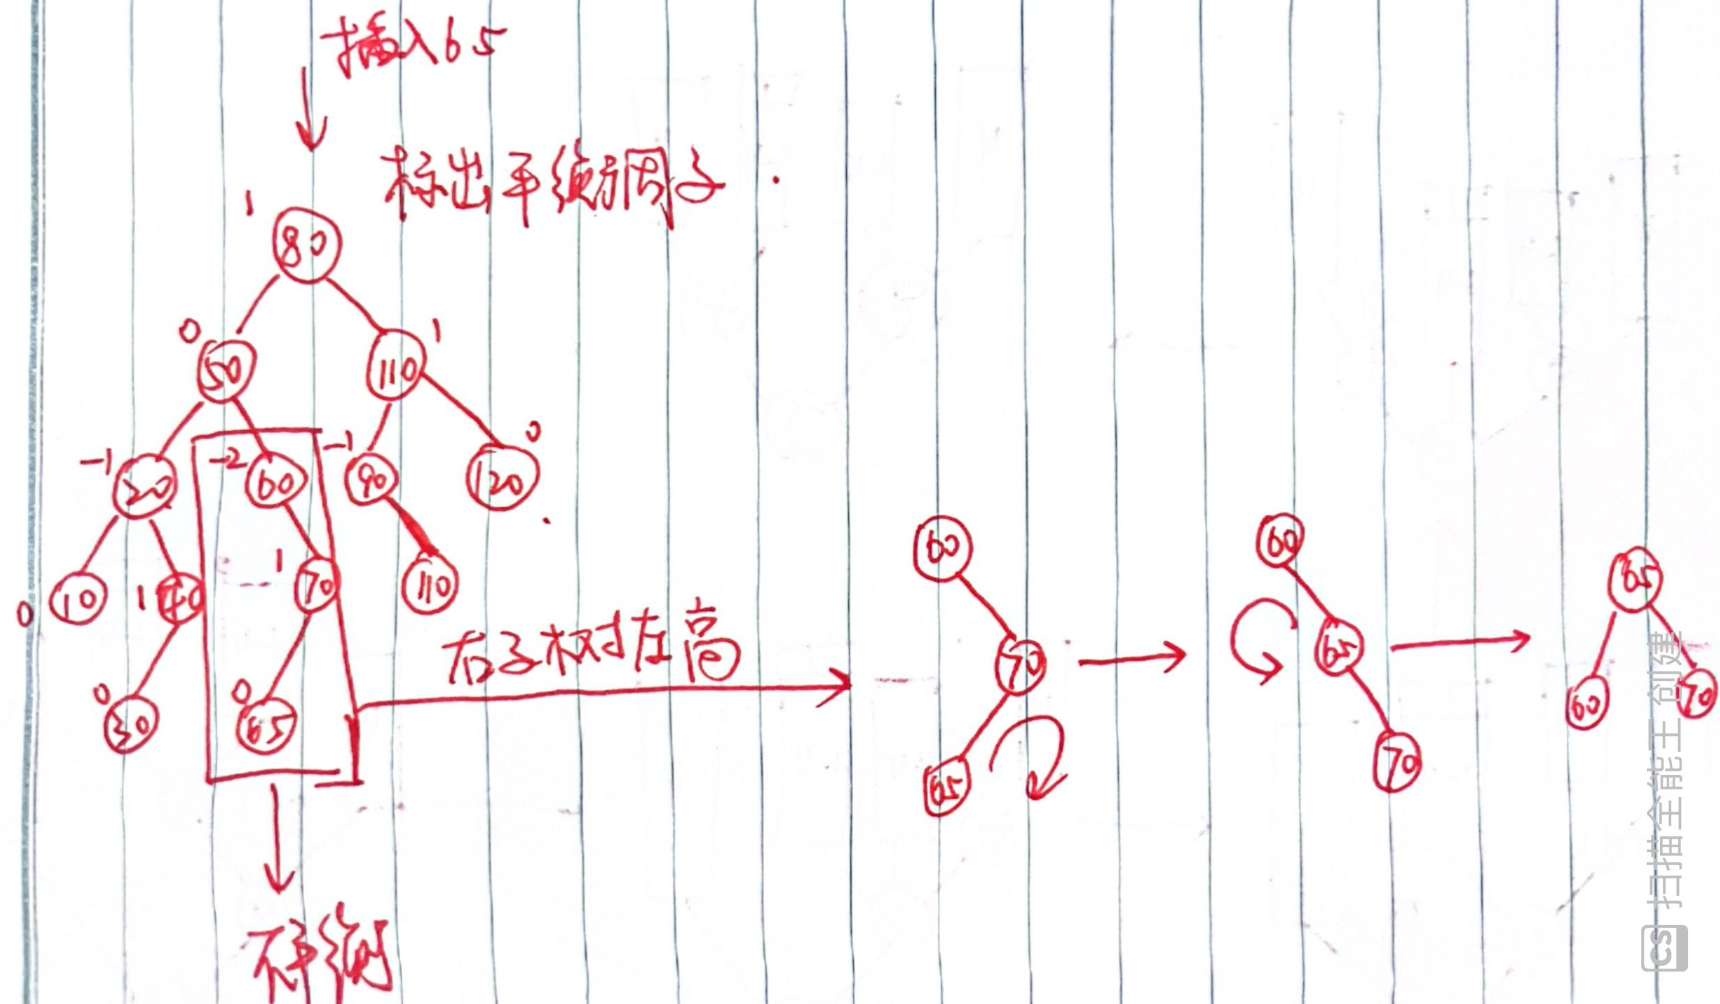 插入65
标出平衡因子
1
80
0
50
1
110
-1
20
-2
60
-1
90
0
120
0
10
1
40
1
70
110
0
30
0
65
右子树左高
60
70
65
60
65
70
65
60
70
不平衡
CS 扫描全能王 创建